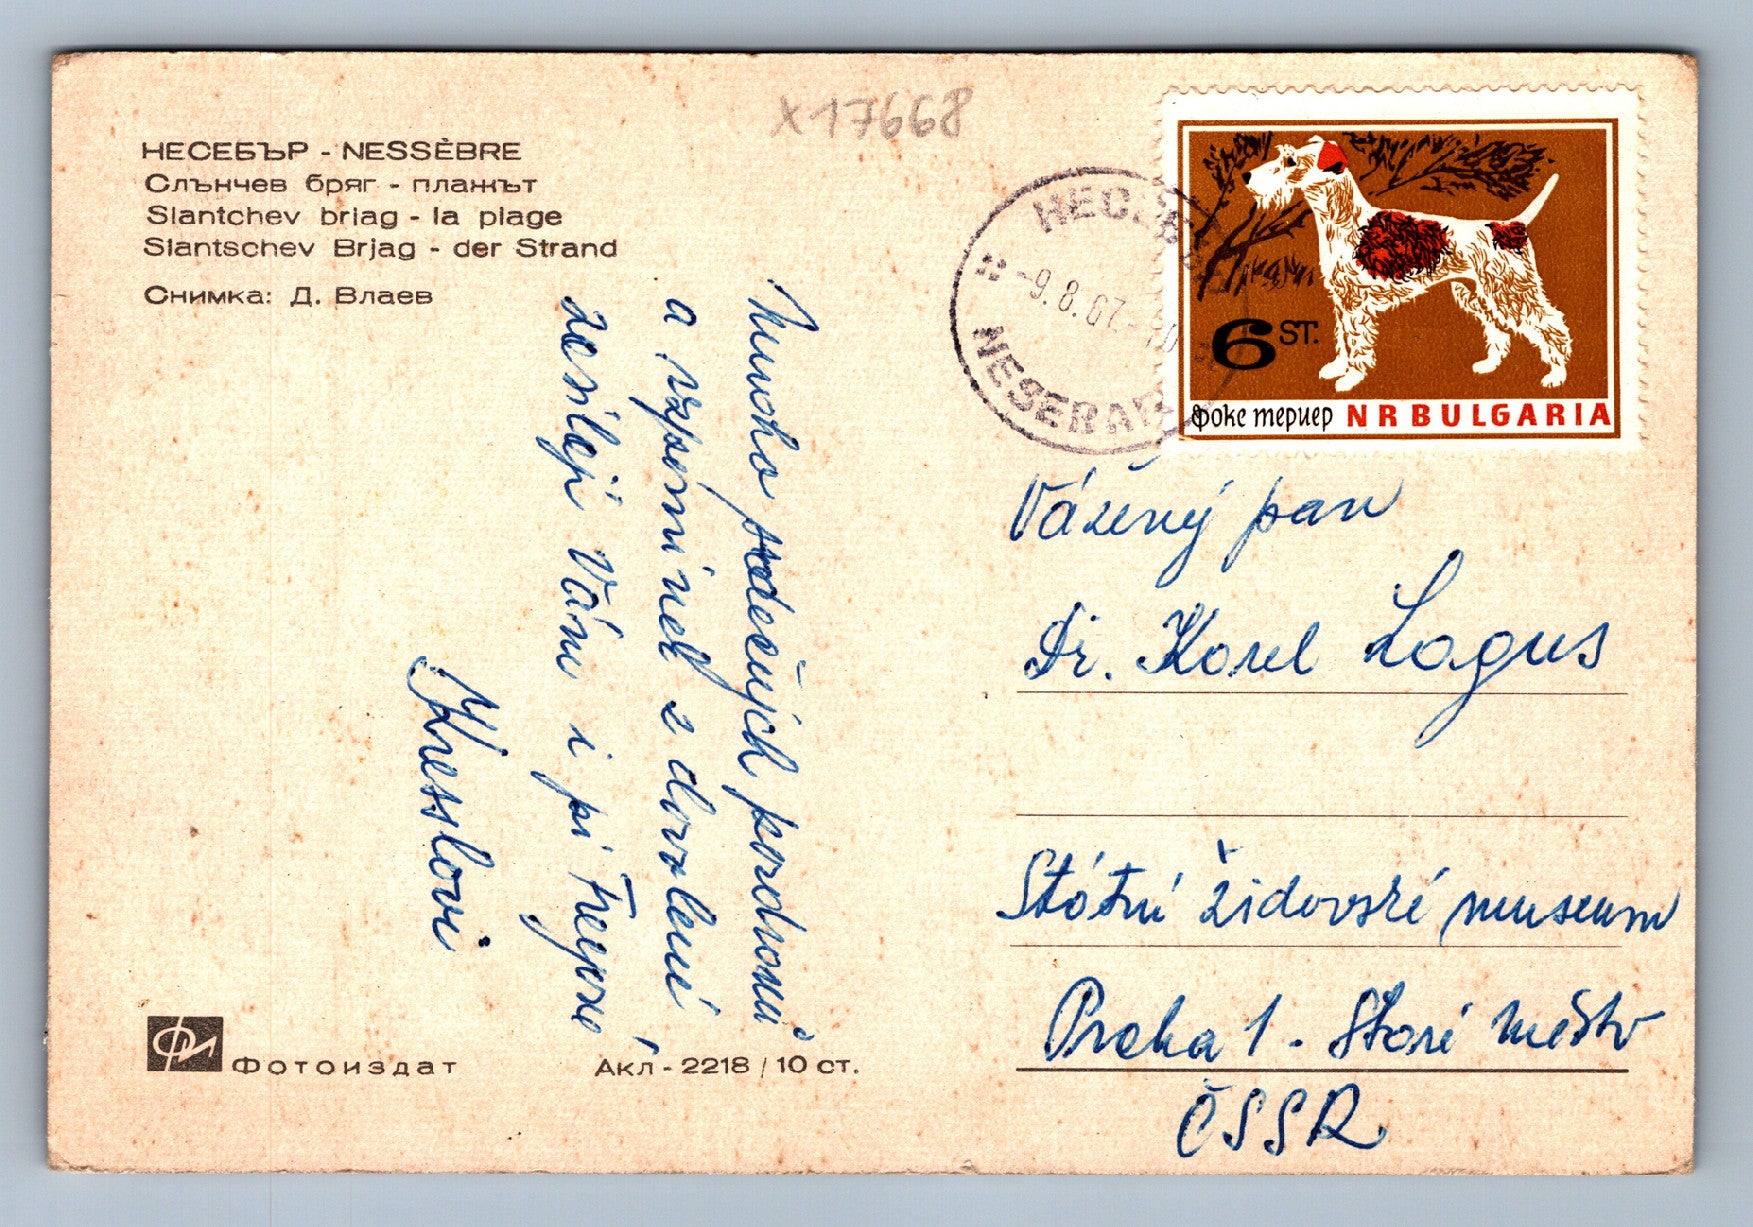 X17668
НЕСЕБЪР - NESSÈBRE
Слънчев бряг - плажът
Slantchev briag - la plage
Slantschev Brjag - der Strand
Снимка: Д. Влаев
-9.8.67.-10
NESEBAR
6 ST.
фокс териер NRBULGARIA
Mnoho srdečných pozdravů
a vzpomínek z dovolené
zasílají Vám i pí
Kresslovi
Vážený pan
Dr. Karel Lagus
Státní židovské museum
Praha 1 - Staré Město
ČSSR
Фотоиздат
Акл - 2218 / 10 ст.